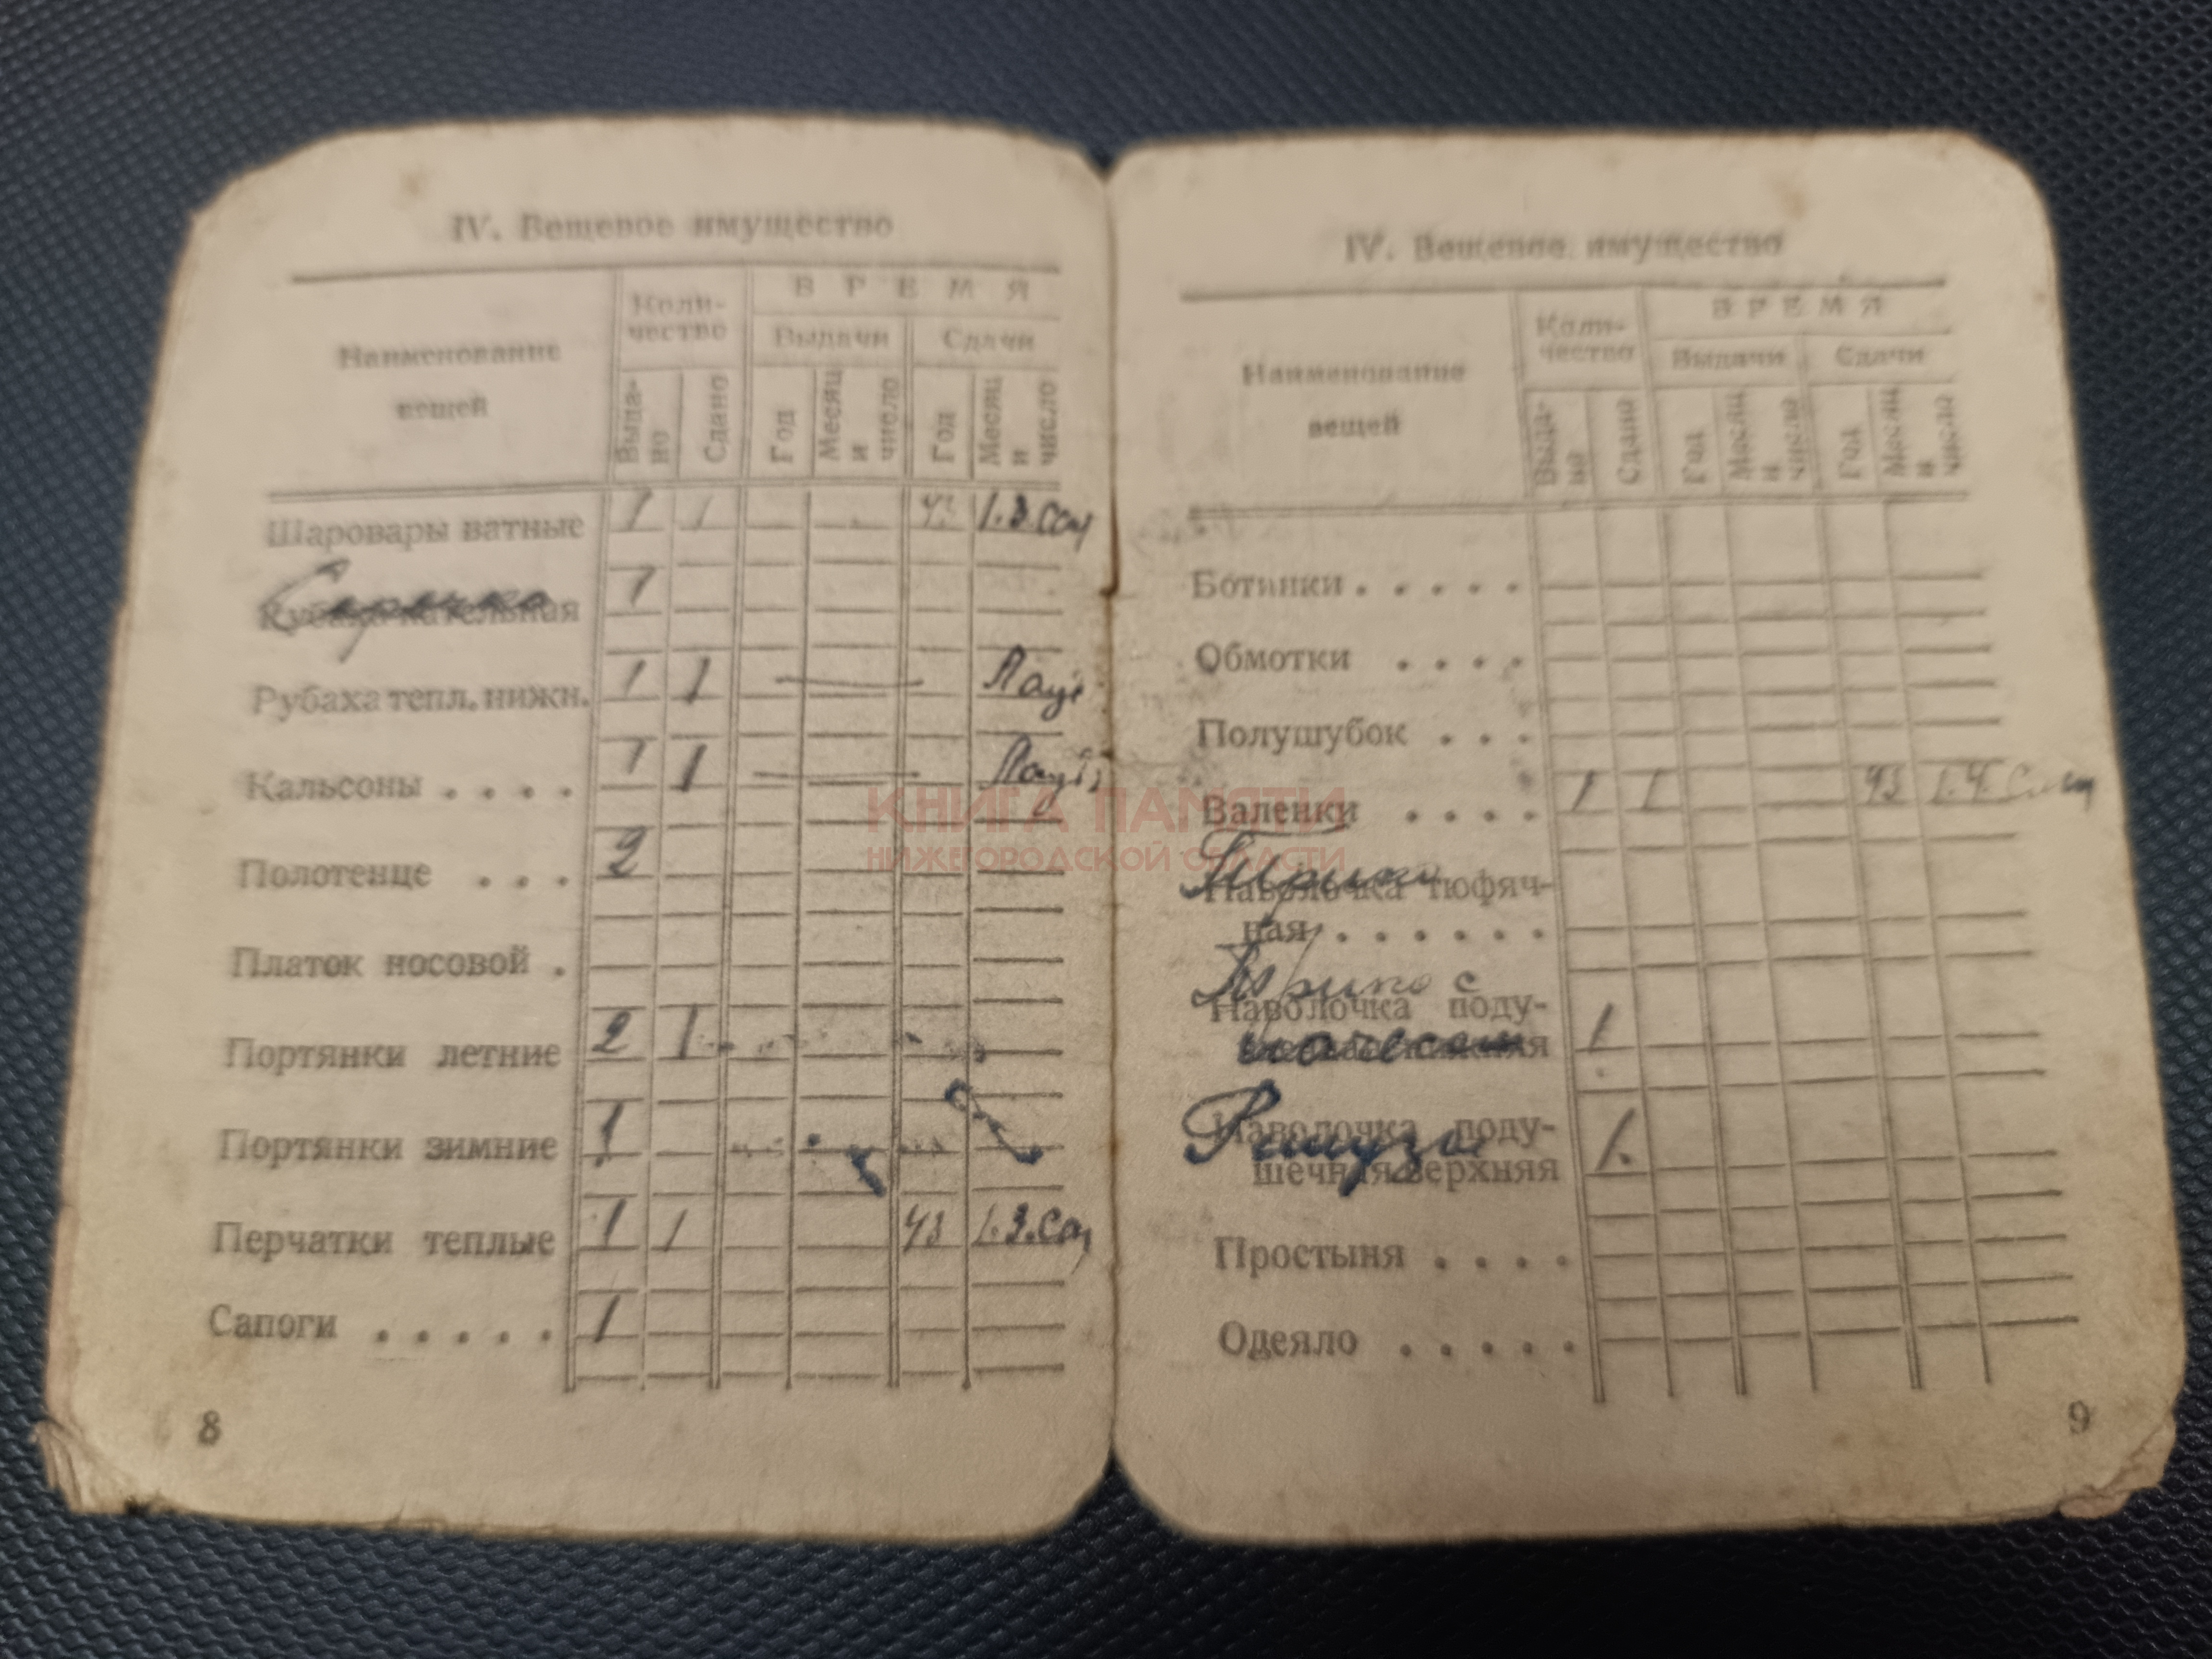 IV. Вещевое имущество
Наименование вещей
Количество
ВРЕМЯ
Выдачи
Сдачи
Выдано
Сдано
Год
Месяц и число
Год
Месяц и число
Шаровары ватные 1 1 43 1.3.
Сорочка 1
Рубаха тепл. нижн. 1 1
Кальсоны . . . . 1 1
Полотенце . . . 2
Платок носовой .
Портянки летние 2 1
Портянки зимние 1
Перчатки теплые 1 1 43 1.3.
Сапоги . . . . . 1
8
IV. Вещевое имущество
Наименование вещей
Количество
ВРЕМЯ
Выдачи
Сдачи
Выдано
Сдано
Год
Месяц и число
Год
Месяц и число
Ботинки . . . . .
Обмотки . . . .
Полушубок . . .
Валенки . . . . 1 1 43 1.4.
Трико
Наволочка тюфячная . . . . . .
Трико с
Наволочка поду-
начесом 1
Рейтузы
Наволочка поду-
шечная верхняя 1.
Простыня . . . .
Одеяло . . . . .
9
КНИГА ПАМЯТИ
НИЖЕГОРОДСКОЙ ОБЛАСТИ